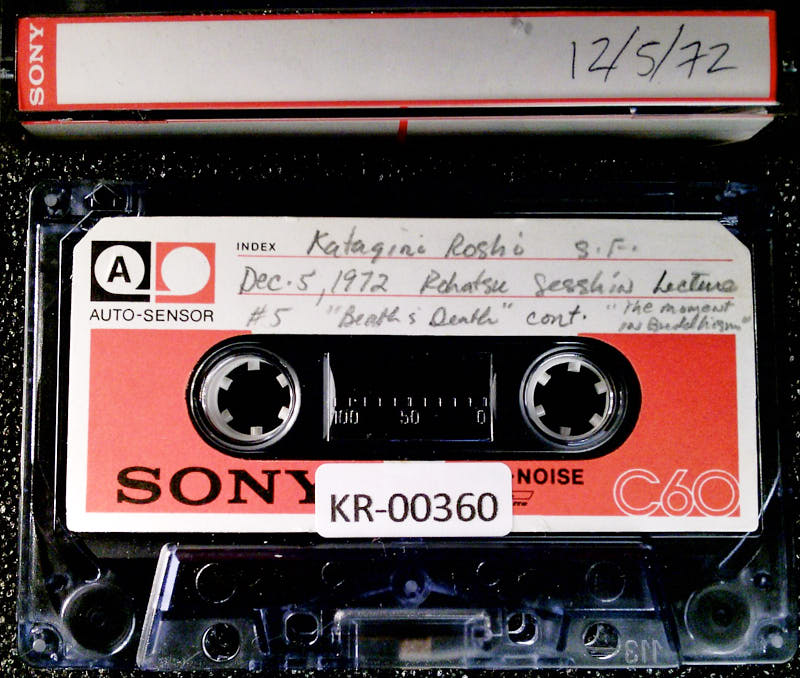 SONY
12/5/72
A
AUTO-SENSOR
INDEX
Katagiri Roshi S.F.
Dec. 5, 1972 Rohatsu Sesshin Lecture
#5 "Breath & Death" cont. "The moment in Buddhism"
100 50 0
SONY
NOISE
C60
KR-00360
113